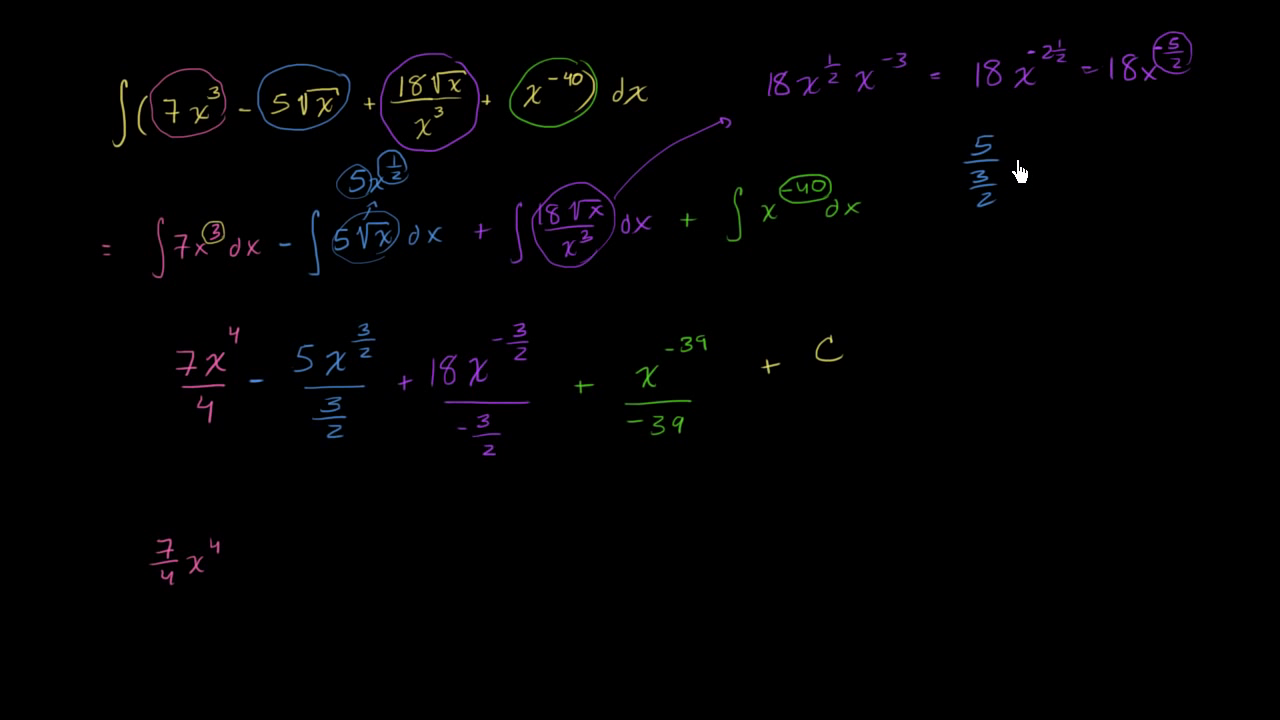 ∫(7x³ - 5√x + 18√x/x³ + x⁻⁴⁰) dx
18x^(1/2) x⁻³ = 18x^(-2 1/2) = 18x^(-5/2)
5x^(1/2)
5/(3/2)
= ∫7x³dx - ∫5√x dx + ∫18√x/x³ dx + ∫x⁻⁴⁰dx
7x⁴/4 - 5x^(3/2)/(3/2) + 18x^(-3/2)/(-3/2) + x⁻³⁹/-39 + C
7/4 x⁴